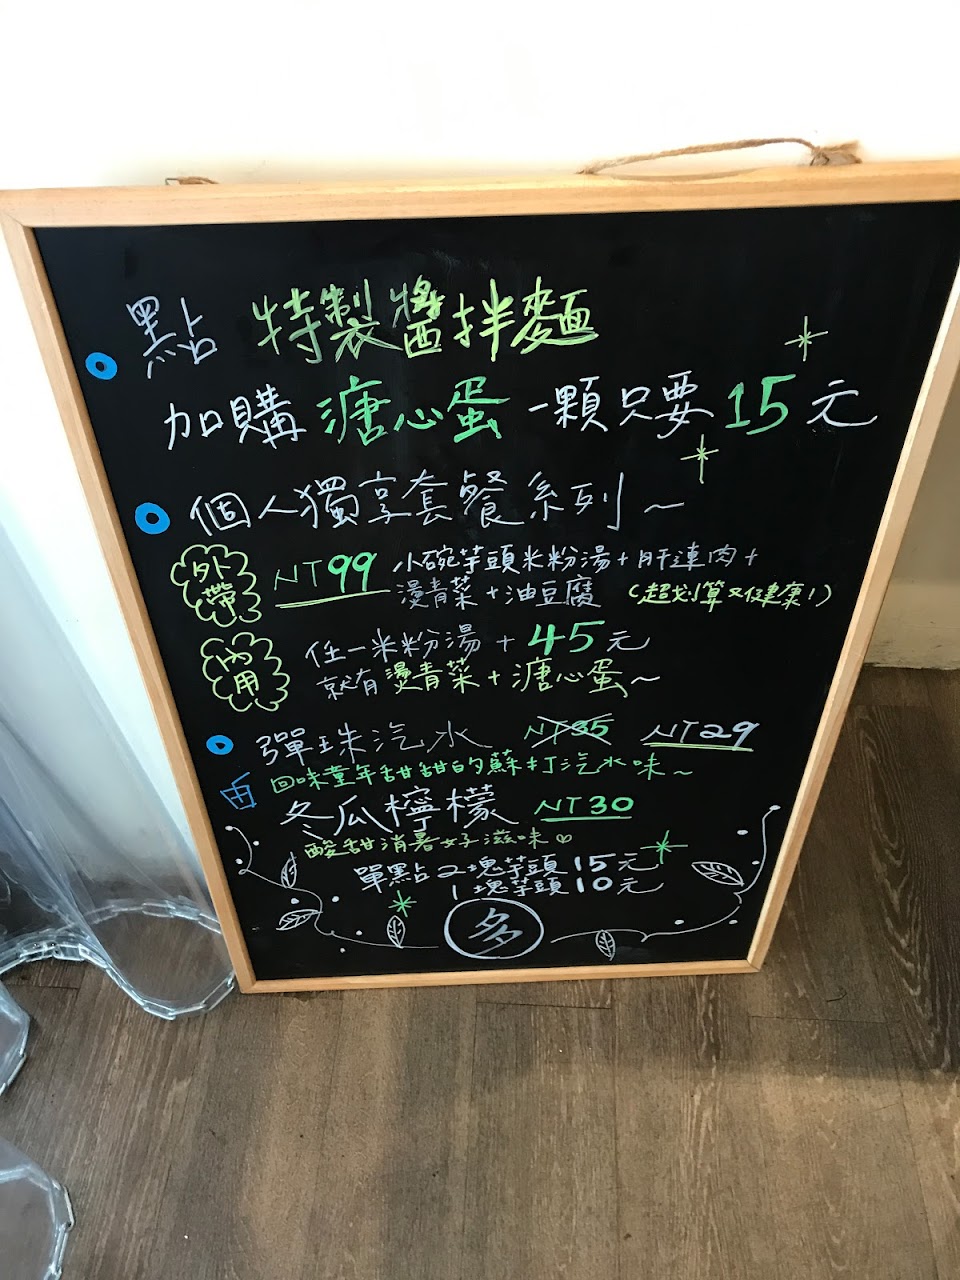 點 特製醬拌麵
加購 溏心蛋 一顆只要15元
個人獨享套餐系列~
外帶 NT99 小碗芋頭米粉湯+肝連肉+
燙青菜+油豆腐 (超划算又健康!)
內用 任一米粉湯+45元
就有燙青菜+溏心蛋~
彈珠汽水 NT35 NT29
回味童年甜甜的蘇打汽水味~
冬瓜檸檬 NT30
酸甜消暑好滋味♡
單點2塊芋頭15元
1塊芋頭10元
多